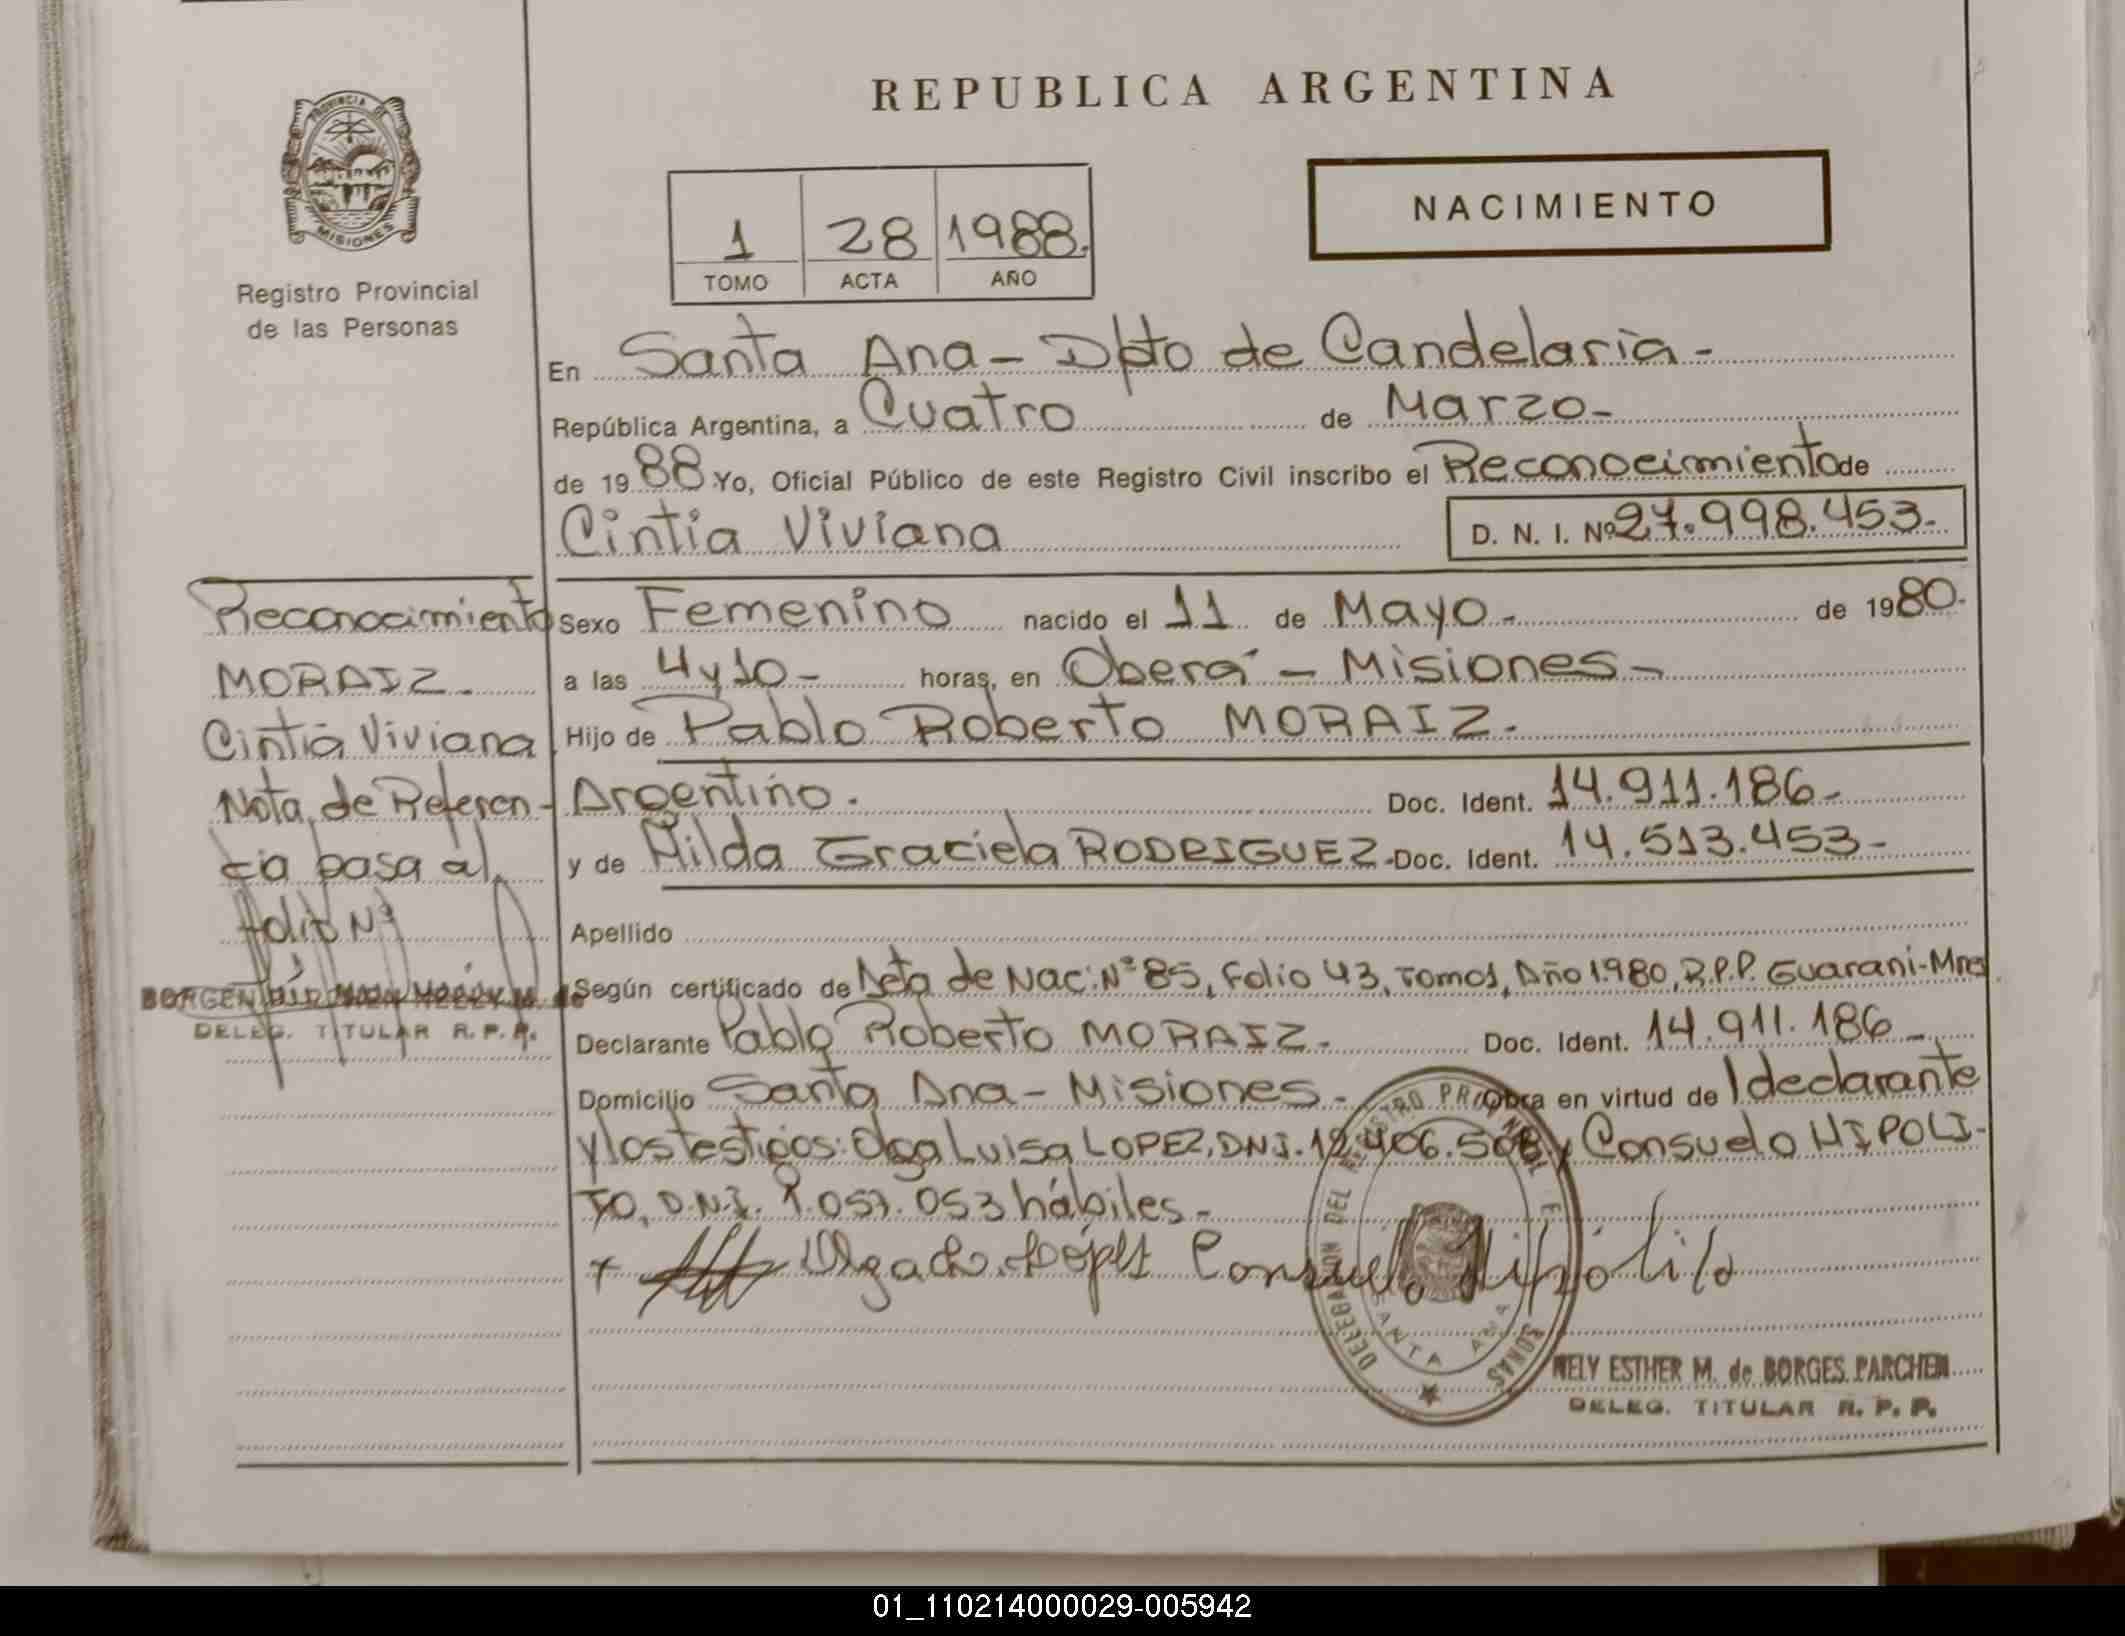 REPUBLICA ARGENTINA
PROVINCIA DE
MISIONES
Registro Provincial
de las Personas
1 28 1988.
TOMO ACTA AÑO
NACIMIENTO
En Santa Ana - Dpto de Candelaria -
República Argentina, a Cuatro de Marzo -
de 1988 Yo, Oficial Público de este Registro Civil inscribo el Reconocimiento de
Cintia Viviana D. N. I. Nº 27.998.453.-
Reconocimiento
MORAIZ.
Cintia Viviana
Nota de Referen-
cia pasa al
folio Nº
DELEG. TITULAR R. P. P.
Sexo Femenino nacido el 11 de Mayo.- de 1980.
a las 4 y 10 - horas, en Oberá - Misiones -
Hijo de Pablo Roberto MORAIZ.
Argentino. Doc. Ident. 14.911.186 -
y de Hilda Graciela RODRIGUEZ - Doc. Ident. 14.513.453 -
Apellido
Según certificado de Acta de Nac: Nº 85, Folio 43, Tomo 1, Año 1.980, R.P.P. Guarani - Mnes
Declarante Pablo Roberto MORAIZ - Doc. Ident. 14.911.186 -
Domicilio Santa Ana - Misiones - Obra en virtud de l declarante
y los testigos: Olga Luisa LOPEZ, DNI. 12.406.508 y Consuelo HIPOLI-
TO, D.N.I. 053 hábiles -
Olga López Consuelo Hipólito
DELEGACION DEL REGISTRO PROVINCIAL DE PERSONAS
SANTA ANA
NELY ESTHER M. de BORGES PARCHEM
DELEG. TITULAR R. P. P.
01_110214000029-005942